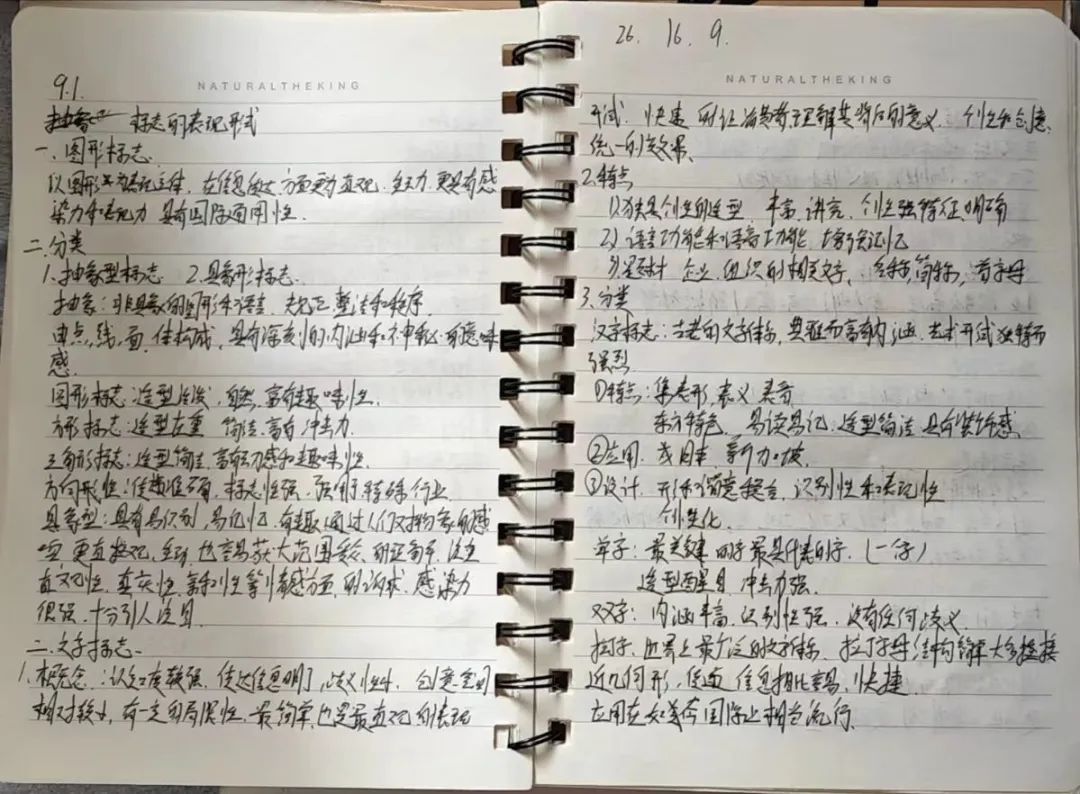 NATURALTHEKING
9.1.
抽象 标志的表现形式
一.图形标志.
以图形为表现主体,在信息传达方面更为直观.生动.更具有感
染力和表现力.具有国际通用性.
二.分类
1.抽象型标志 2.具象形标志.
抽象:非具象的图形和语言 规正.整洁和秩序
由点,线,面,体构成,具有深刻的内涵和神秘.的意味
感.
圆形标志:造型活泼,自然,富有趣味性.
方形标志:造型庄重 简洁.富有冲击力.
三角形标志:造型简洁,富有动感和趣味性.
方向形性:传播准确,标志性强,强用于特殊行业
具象型:具有易识别,易记忆.有趣,通过人们对物象的感
更直接观,生动 也容易获大范围
直文化性.真实性.亲和性等情感方面,的诉求.感染力
很强.十分引人注目.
二.文字标志.
1.概念:认知度较强.传达信息明了,歧义性小.创意空间
相对较小,有一定的局限性.最简单,也是最直观的表现
26. 16. 9.
NATURALTHEKING
形式. 快速的让消费者理解其背后的意义. 个性和创意,
统一的效果.
2.特点
1)独具个性的造型,丰富,讲究,个性强特征明确
2) 语言功能和语音功能,增强记忆
3)题材 企业,组织的相关文字,全称,简称,首字母
3.分类
汉字标志:古老的文字体系,典雅而富有内涵,艺术形式独特而
强烈
①特点:集表形,表义,表音
东方特色,易读易记,造型简洁,具有装饰感
②应用,我国 日本,新加坡
③设计,形和寓意结合,识别性和表现性
个性化.
单字:最关键的字 最具代表的字.(一字)
造型醒目,冲击力强.
双字:内涵丰富,识别性强.没有任何歧义
拉丁字,世界上最广泛的文字体系,拉丁字母结构简单大多接
近几何形,传递信息相比容易,快捷
应用在如送今国际上相当流行.